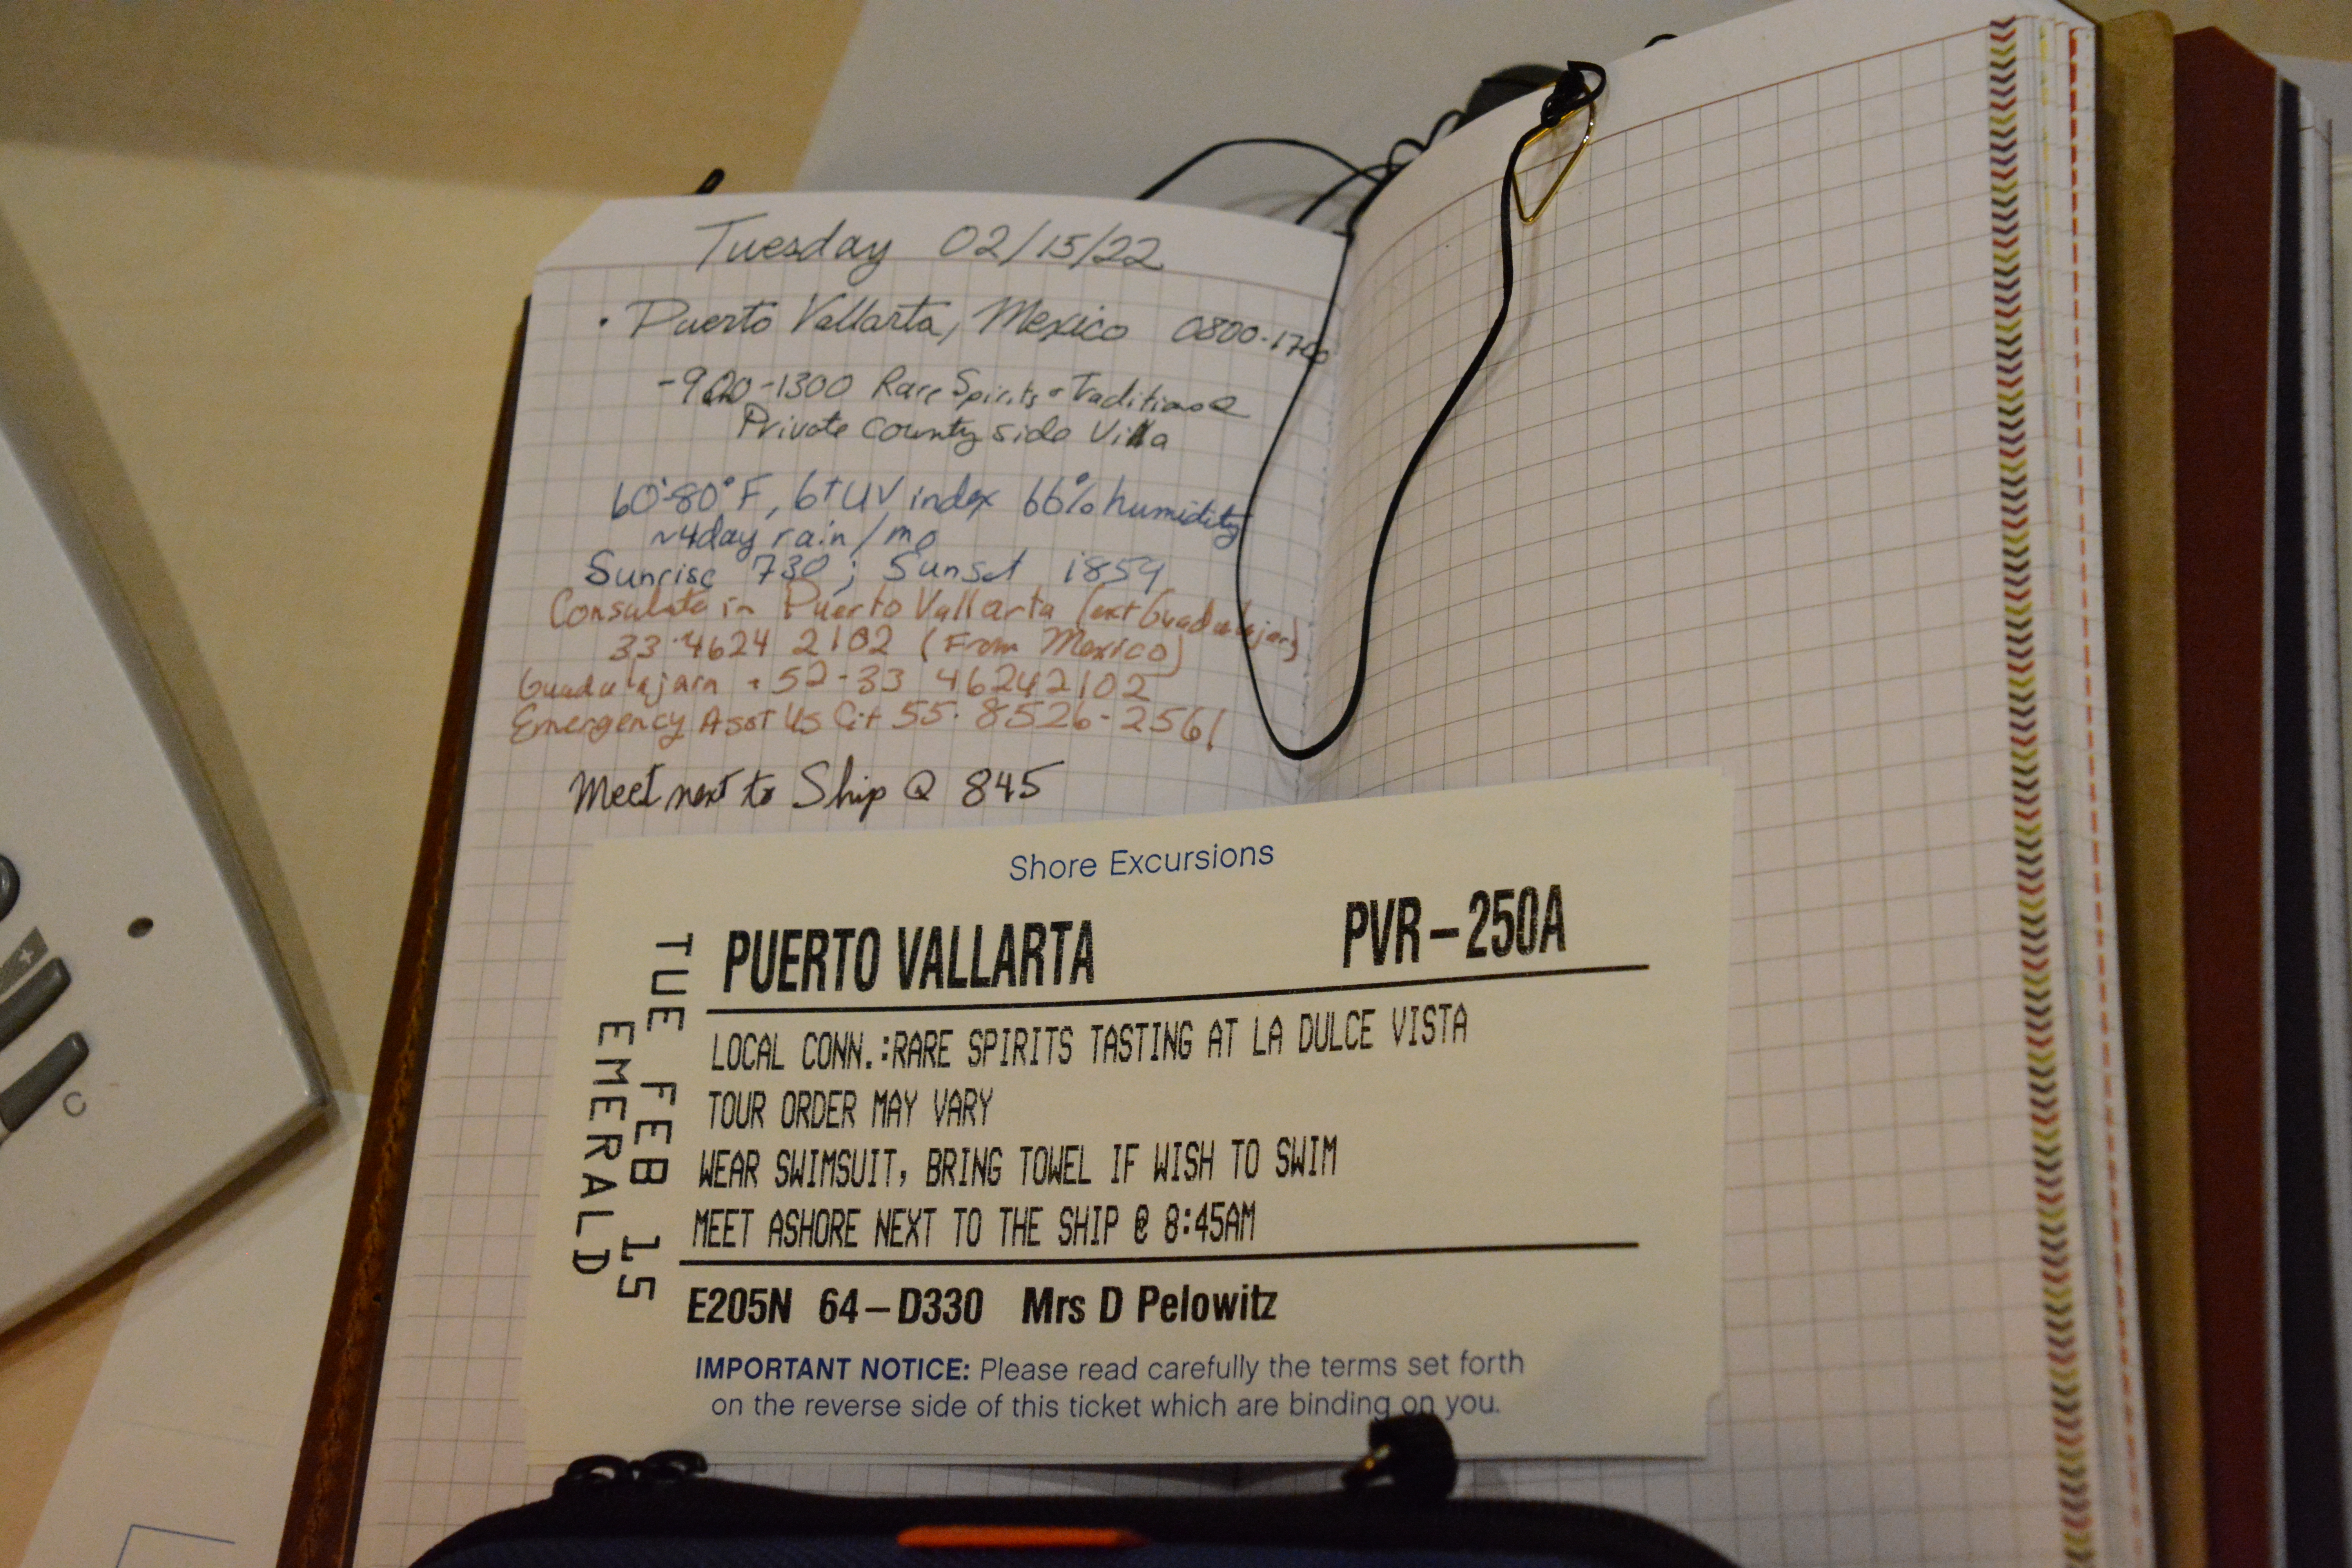 Tuesday 02/15/22
• Puerto Vallarta, Mexico 0800-1700
-900-1300 Rare Spirits & Traditions
Private County side Villa
60°-80°F, 6+ UV index 66% humidity
~4day rain/mo
Sunrise 730; Sunset 1859
Consulate in Puerto Vallarta (ext Guadalajara)
33-4624 2102 (From Mexico)
Guadalajara +52-33 46242102
Emergency Asst US Cit 55-8526-2561
Meet next to Ship @ 845
Shore Excursions
PUERTO VALLARTA PVR-250A
LOCAL CONN.:RARE SPIRITS TASTING AT LA DULCE VISTA
TOUR ORDER MAY VARY
WEAR SWIMSUIT, BRING TOWEL IF WISH TO SWIM
MEET ASHORE NEXT TO THE SHIP @ 8:45AM
TUE FEB 15
EMERALD
E205N 64-D330 Mrs D Pelowitz
IMPORTANT NOTICE: Please read carefully the terms set forth
on the reverse side of this ticket which are binding on you.
+
C